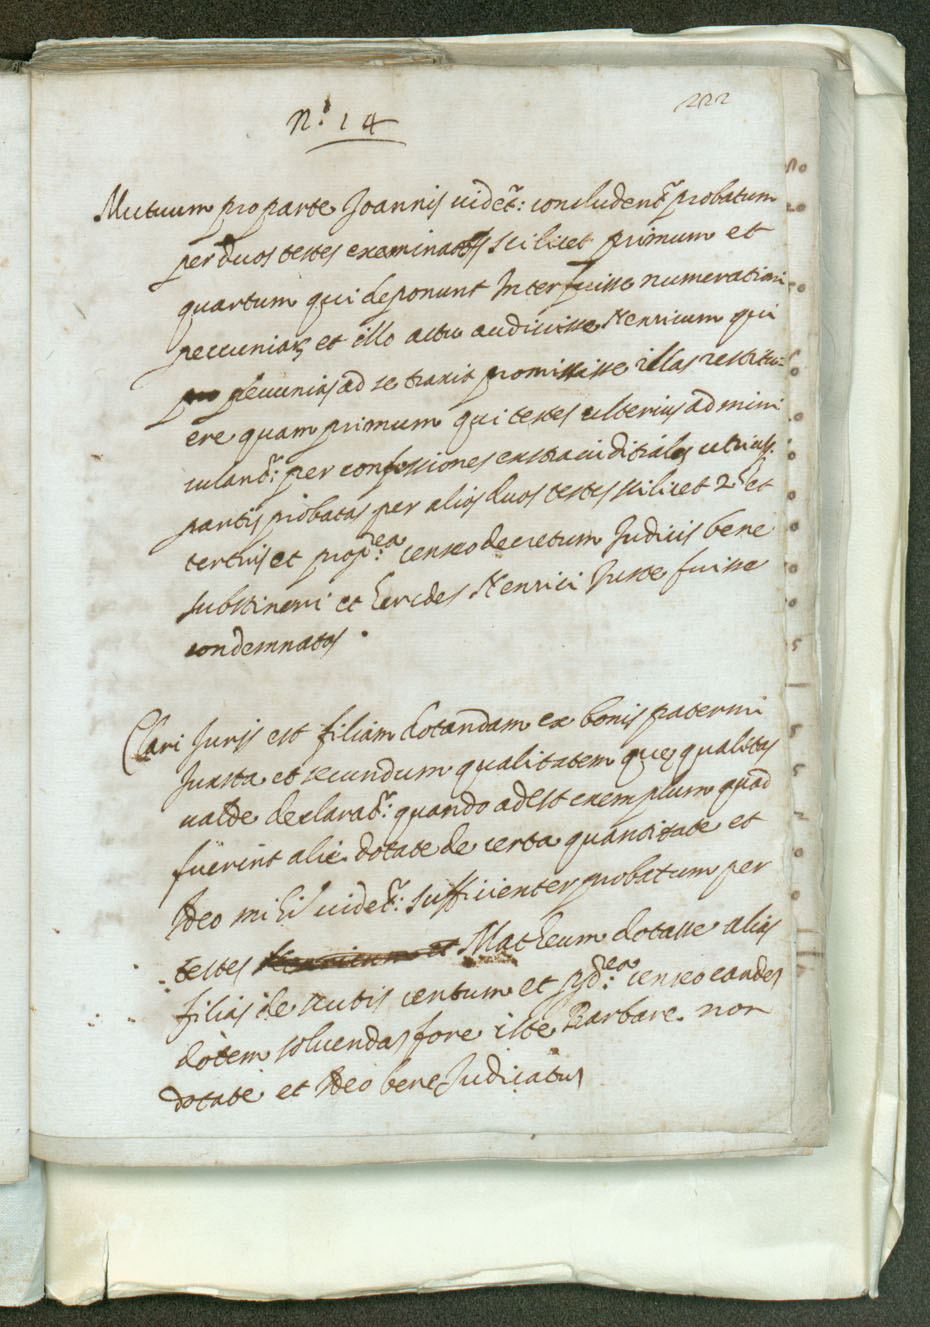 222
N.º 14
Mutuum pro parte Joannis videt.r: concludent.r probatum
per duos testes examinatos scilicet primum et
quartum qui deponunt Interfuisse numerationi
peccuniar et illo actu audivisse Henricum qui
pecunias ad se traxit promisisse illas restitu=
ere quam primum qui testes ulterius admini
culant.r: per confessiones extraiuditiales utrius.
partis probatas per alios duos testes scilicet 2.m et
tertius et prop.ea censeo decretum Judicis bene
substineri et heredes Henrici Juste fuisse
condemnatos.
Clari Juris est filiam dotandam ex bonis paternis
Juxta et secundum qualitatem que qualitas
valde declarat.r: quando adest exemplum quod
fuerint alie dotate de certa quantitate et
Ideo mihi videt.r: sufficienter probatum per
testes Matheum dotasse alias
filias de scutis centum et pd.ea: censeo eandes
dotem solvendas fore iste Barbare non
dotate et Ideo bene Judicatus